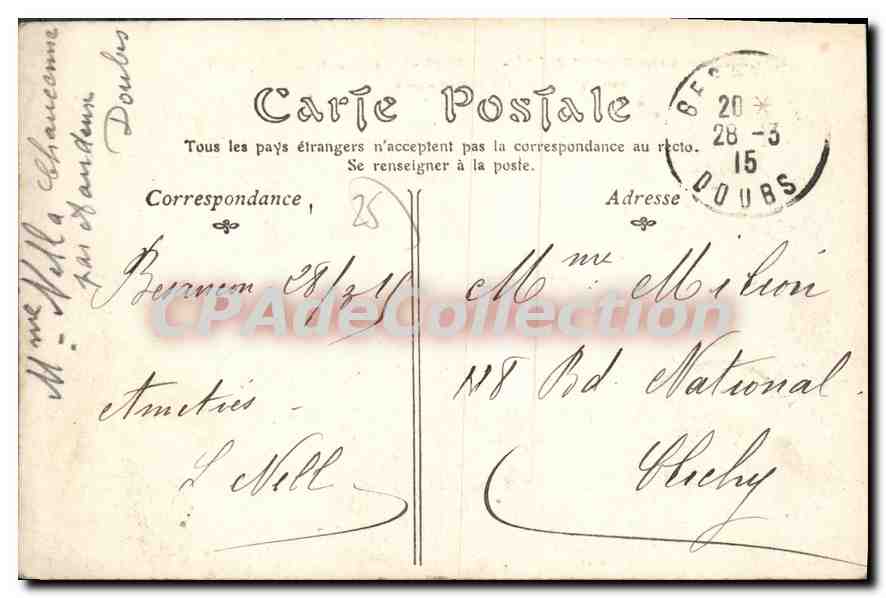 Mme Nell à Chaucenne
par Audeux
Doubs
Carte Postale
Tous les pays étrangers n'acceptent pas la correspondance au recto.
Se renseigner à la poste.
BES
20 *
28 -3
15
DOUBS
Correspondance
25
Adresse
Besançon 28/3 15
Amitiés
L Nell
Mme Milion
118 Bd. National
Clichy
CPAdeCollection.com